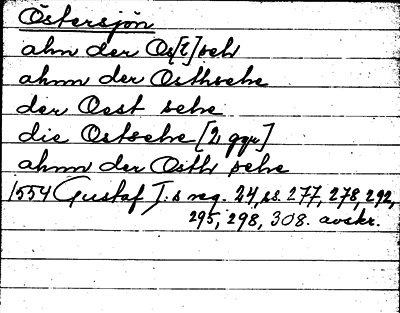 Östersjön
ahn der Os[t]seh
ahnn der Osthsehe
der Oest sehe
die Ostsehe [2 ggr]
ahnn der Osth sehe
1554 Gustaf I.s reg. 24, ss. 277, 278, 292,
295, 298, 308. avskr.